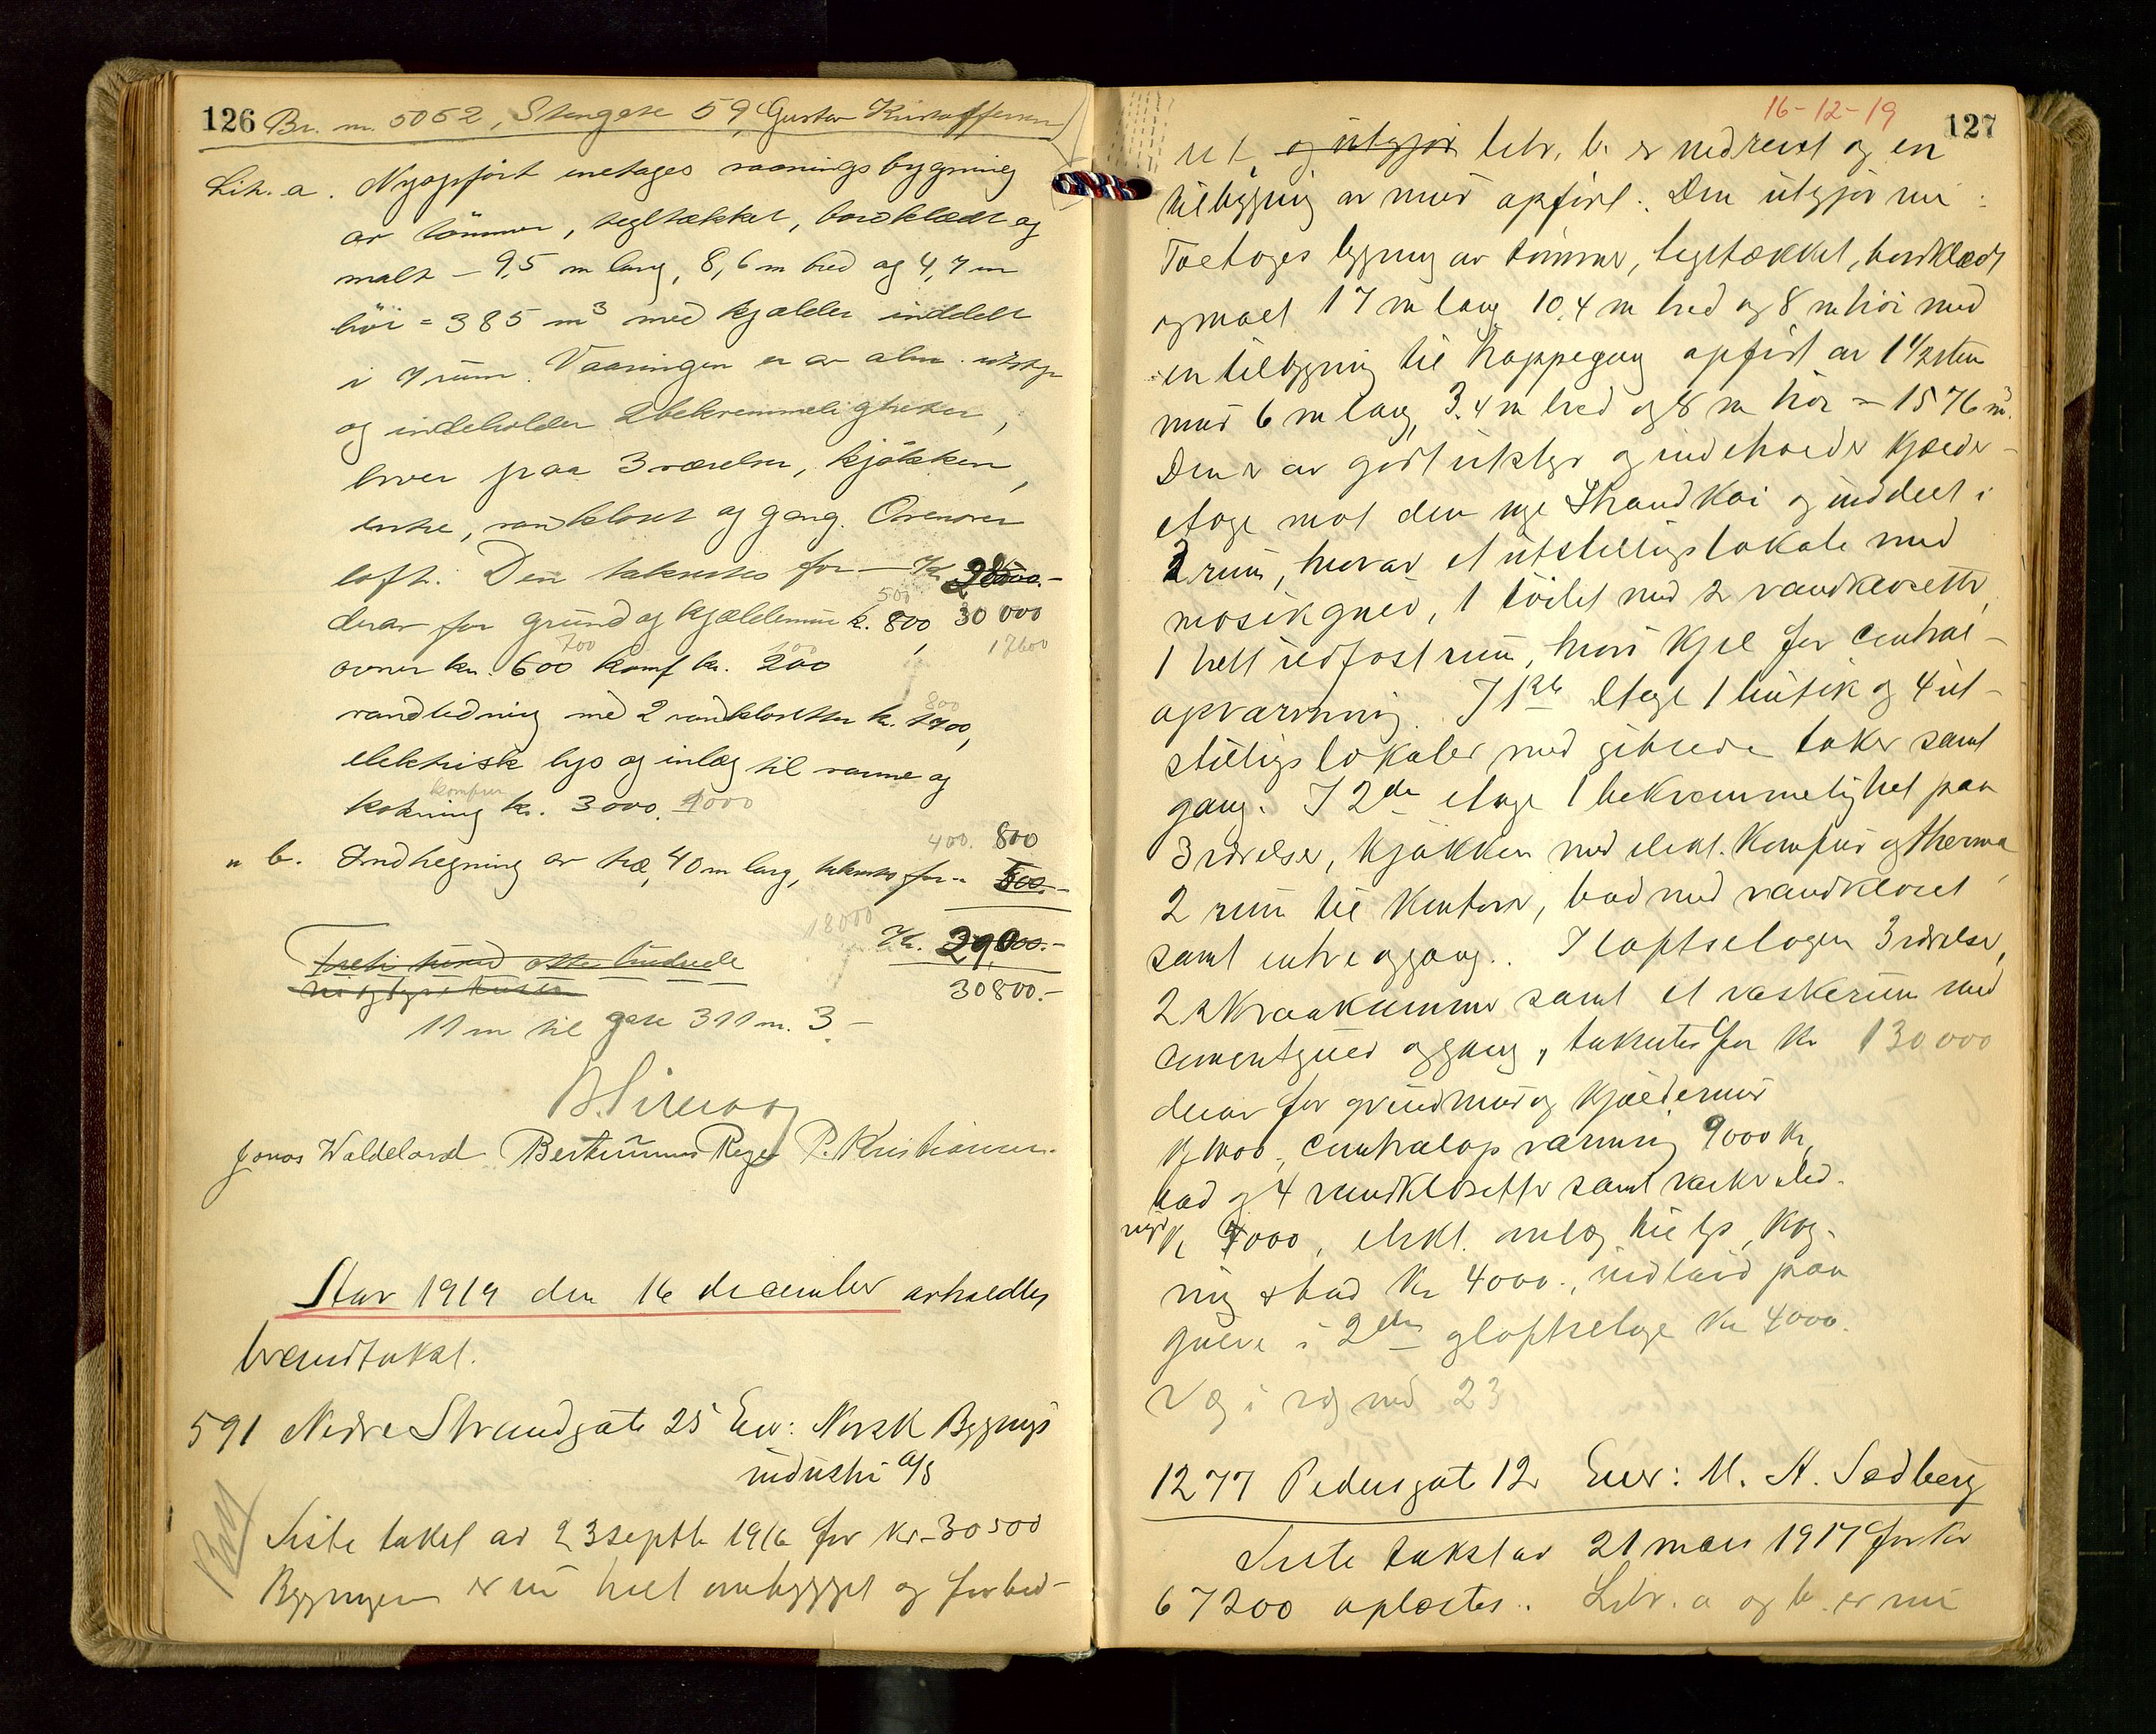 126 Br. nr. 5052, Stengate 59, Gustav Kristoffersen
Litr. a. Nyopført enetages vaaningsbygning
av tömmer, tegltækket, bordklædt og
malt – 9,5 m lang, 8,6 m bred og 4,7 m
höi = 385 m³ med kjælder inddelt
i 7 rum. Vaaningen er av alm. utstyr
og indeholder 2 bekvemmeligheter,
hver paa 3 værelser, kjökken,
entre, vandkloset og gang. Ovenover
loft. Den takseres for – Kr. 28000.-
500
derav for grund og kjældermur k. 800, 30 000
700 100 17600
ovner kr. 600 komf kr. 200
800
vandledning med 2 vandklosetter kr. 1400,
elektrisk lys og inlæg til varme og
komfur
kokning kr. 3000. 1000
400. 800
" b. Indhegning av træ, 40 m lang, takseres for " 500.-
18000 Kr. 29,000.-
Tretti tusend otte hundrede
ni og tyve tusen
30800.-
11 m til gate 311 m. 3 –
Jonas Waldeland Bertinius Rege P. Kristiansen.
Aar 1919 den 16 december avholdtes
brandtakst.
591 Nedre Strandgate 25 Eier: Norsk Bygnings
industri A/S
Siste takst av 23 septbr 1916 for kr. 30500
Bygningen er nu helt ombygget og forbed-
16-12-19
127
ret, og utgjør litr. b. er nedrevet og en
tilbygning av mur opført. Den utgjör nu:
Toetages bygning av tömmer, tegltækket, bordklædt
og malt 17 m lang 10,4 m bred og 8 m höi med
en tilbygning til trappegang opført av 1 1/2 sten
mur 6 m lang, 3.4 m bred og 8 m höi = 1576 m³.
Den er av godt utstyr og indeholder kjælder-
etage mot den nye Strandkai og inddelt i
2 rum, hvorav et utstillingslokale med
mosaikgulv, 1 toilet med 2 vandklosetter,
1 helt ildfast rum, hvori kjel for central-
opvarmning. I 1ste etage 1 butik og 4 ut-
stillingslokaler med gibsede taker samt
gang. I 2den etage 1 bekvemmelighet paa
3 værelser, kjøkken med elekt. komfur og therma,
2 rum til kontor, bad med vandkloset
samt entre og gang. I loftsetagen 3 værelser,
2 skraakummer samt et vaskerum med
cementgulv og gang, takseres for kr 130 000
derav for grundmur og kjældermur
centralopvarming 9000 kr,
bad og 4 vandklosetter samt vaskeled-
ning kr 7000, elekt. anlæg til lys, kog-
ning & bad kr 4000., indlaid paa
gulve i 2den og loftsetage kr 4000.
1277 Pedersgate 12 Eier: M. A. Sedberg
Siste takst av 21 mars 1917 for kr
67200 oplæstes. Litr. a og b. er nu